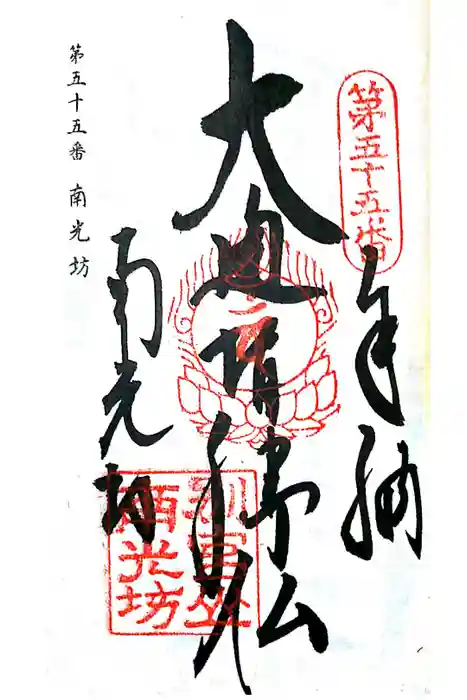 第五十五番
奉納
大通智勝仏
別宮山
南光坊
南光坊
第五十五番 南光坊